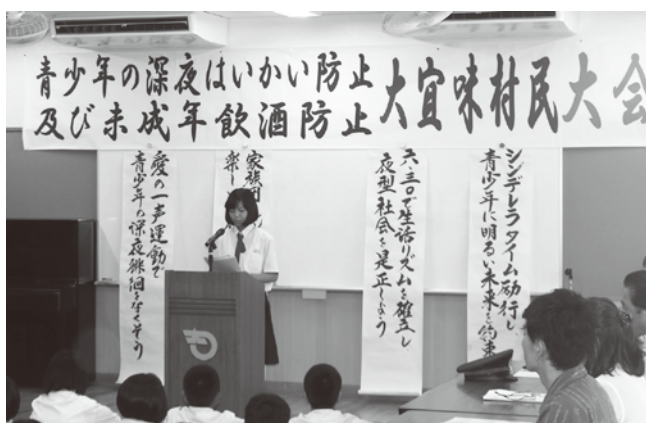 青少年の深夜はいかい防止
及び未成年飲酒防止
大宜味村民大会
シンデレラタイム励行し
青少年に明るい未来を約束
六・三〇で生活リズムを確立し
夜型社会を是正しよう
家族団
楽し
愛の一声運動で
青少年の深夜徘徊をなくそう